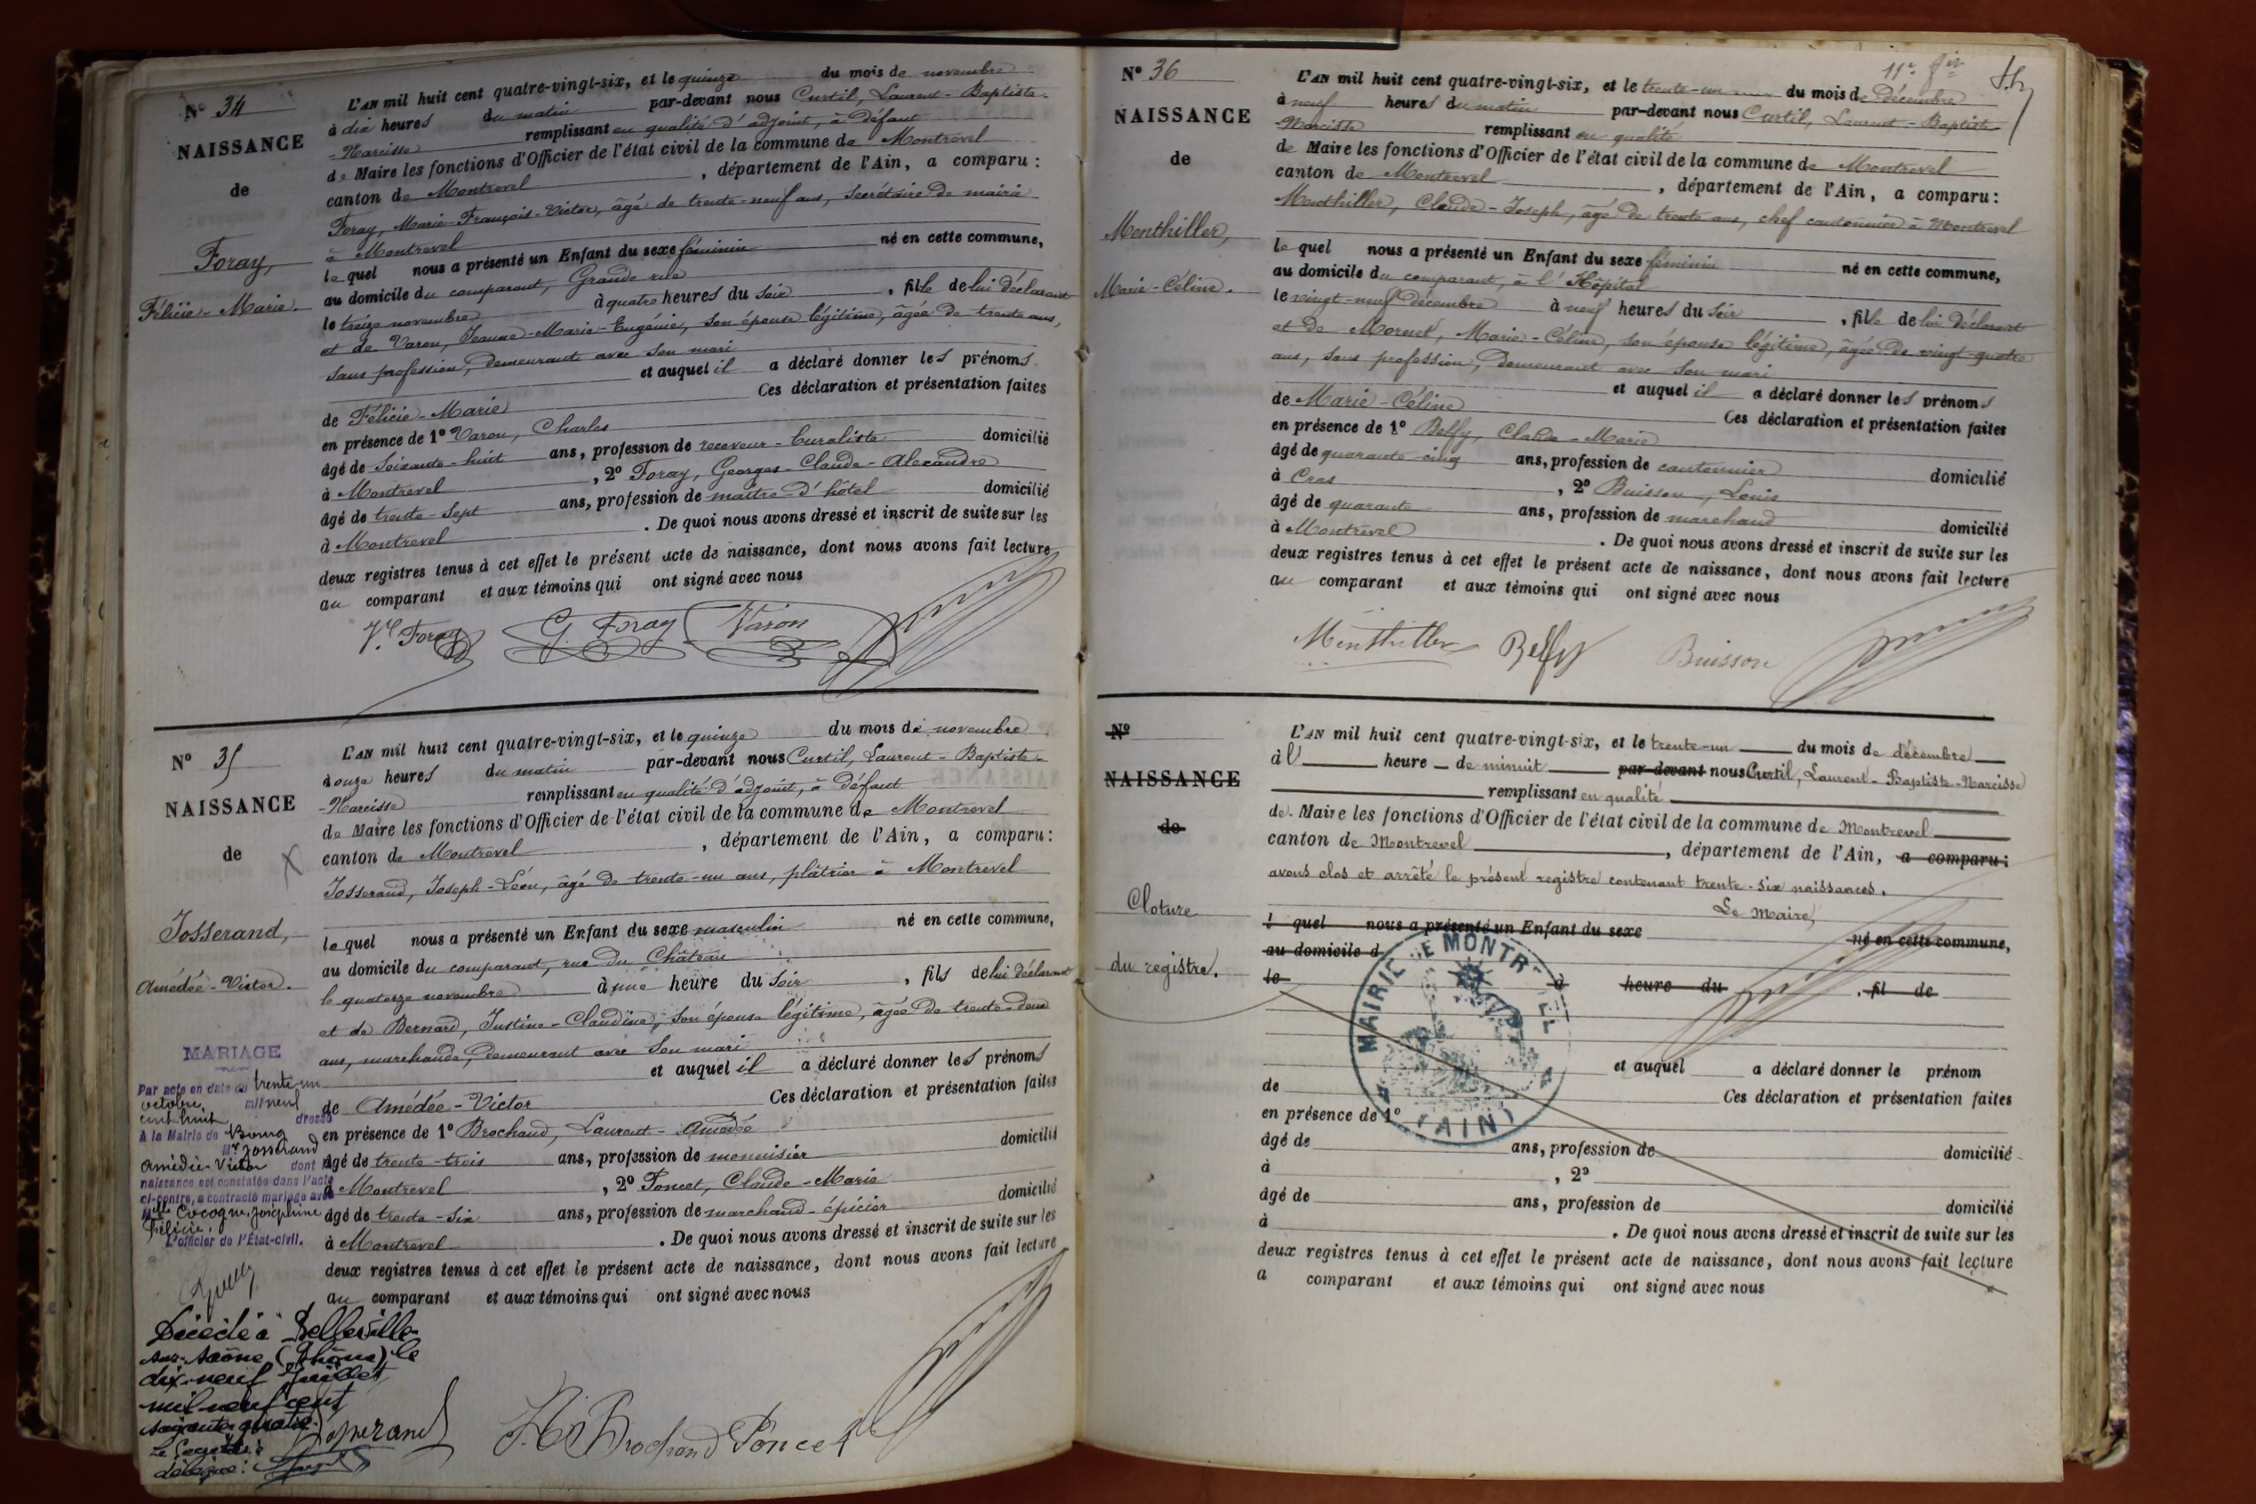 Nº 34
NAISSANCE
de
Foray,
Félicie-Marie.
L'AN mil huit cent quatre-vingt-six, et le quinze du mois de novembre
à dix heures du matin par-devant nous Curtil, Laurent-Baptiste-
-Narcisse remplissant en qualité d'adjoint, à défaut
de Maire les fonctions d'Officier de l'état civil de la commune de Montrevel
canton de Montrevel, département de l'Ain, a comparu :
Foray, Marie-François-Victor, âgé de trente-neuf ans, secrétaire de mairie
à Montrevel
le quel nous a présenté un Enfant du sexe féminin né en cette commune,
au domicile du comparant, Grande rue
le treize novembre à quatre heures du soir, fille de lui déclarant
et de Varon, Jeanne-Marie-Eugénie, son épouse légitime, âgée de trente ans,
sans profession, demeurant avec son mari
et auquel il a déclaré donner les prénoms
de Félicie-Marie Ces déclaration et présentation faites
en présence de 1º Varon, Charles
âgé de soixante-huit ans, profession de receveur-buraliste domicilié
à Montrevel, 2º Foray, Georges-Claude-Alexandre
âgé de trente-sept ans, profession de maître d'hôtel domicilié
à Montrevel. De quoi nous avons dressé et inscrit de suite sur les
deux registres tenus à cet effet le présent acte de naissance, dont nous avons fait lecture
au comparant et aux témoins qui ont signé avec nous
Foray G. Foray Varon
Nº 35
NAISSANCE
de
Josserand,
Amédée-Victor.
L'AN mil huit cent quatre-vingt-six, et le quinze du mois de novembre
à onze heures du matin par-devant nous Curtil, Laurent-Baptiste-
-Narcisse remplissant en qualité d'adjoint, à défaut
de Maire les fonctions d'Officier de l'état civil de la commune de Montrevel
canton de Montrevel, département de l'Ain, a comparu :
Josserand, Joseph-Léon, âgé de trente-un ans, plâtrier à Montrevel
le quel nous a présenté un Enfant du sexe masculin né en cette commune,
au domicile du comparant, rue du Château
le quatorze novembre à une heure du soir, fils de lui déclarant
et de Bernard, Justine-Claudine, son épouse légitime, âgée de trente-deux
ans, marchande, demeurant avec son mari
et auquel il a déclaré donner les prénoms
de Amédée-Victor Ces déclaration et présentation faites
en présence de 1º Brochand, Laurent-Amédée
âgé de trente-trois ans, profession de menuisier domicilié
à Montrevel, 2º Poncet, Claude-Marie
âgé de trente-six ans, profession de marchand-épicier domicilié
à Montrevel. De quoi nous avons dressé et inscrit de suite sur les
deux registres tenus à cet effet le présent acte de naissance, dont nous avons fait lecture
au comparant et aux témoins qui ont signé avec nous
MARIAGE
Par acte en date du trente-un
octobre, mil neuf
cent huit dressé
à la Mairie de Bourg
Mr Josserand
Amédée-Victor dont la
naissance est constatée dans l'acte
ci-contre, a contracté mariage avec
Mlle Cocogne, Joséphine
Félicie.
L'officier de l'État-civil.
Décédé à Belleville-
sur-Saône (Rhône) le
dix-neuf Juillet
mil neuf cent
soixante quatre
Josserand Brochand Poncet
Nº 36
NAISSANCE
de
Monthiller,
Marie-Céline.
L'AN mil huit cent quatre-vingt-six, et le trente-un du mois de décembre
à neuf heures du matin par-devant nous Curtil, Laurent-Baptiste-
-Narcisse remplissant en qualité
de Maire les fonctions d'Officier de l'état civil de la commune de Montrevel
canton de Montrevel, département de l'Ain, a comparu :
Monthiller, Claude-Joseph, âgé de trente ans, chef cantonnier à Montrevel
le quel nous a présenté un Enfant du sexe féminin né en cette commune,
au domicile du comparant, à l'Hôpital
le vingt-neuf décembre à neuf heures du soir, fille de lui déclarant
et de Morel, Marie-Céline, son épouse légitime, âgée de vingt-quatre
ans, sans profession, demeurant avec son mari
et auquel il a déclaré donner les prénoms
de Marie-Céline Ces déclaration et présentation faites
en présence de 1º Belfy, Claude-Marie
âgé de quarante-cinq ans, profession de cantonnier domicilié
à Cras, 2º Buisson, Louis
âgé de quarante ans, profession de marchand domicilié
à Montrevel. De quoi nous avons dressé et inscrit de suite sur les
deux registres tenus à cet effet le présent acte de naissance, dont nous avons fait lecture
au comparant et aux témoins qui ont signé avec nous
Monthiller Belfy Buisson
Nº
NAISSANCE
de
Cloture
du registre.
L'AN mil huit cent quatre-vingt-six, et le trente-un du mois de décembre
à l' heure de minuit par-devant nous Curtil, Laurent-Baptiste-Narcisse
remplissant en qualité
de Maire les fonctions d'Officier de l'état civil de la commune de Montrevel
canton de Montrevel, département de l'Ain, a comparu :
avons clos et arrêté le présent registre contenant trente-six naissances.
Le Maire,
l quel nous a présenté un Enfant du sexe né en cette commune,
au domicile d
le à heure du , fil de
MAIRIE DE MONTREVEL
(AIN)
et auquel a déclaré donner le prénom
de Ces déclaration et présentation faites
en présence de 1º
âgé de ans, profession de domicilié
à , 2º
âgé de ans, profession de domicilié
à . De quoi nous avons dressé et inscrit de suite sur les
deux registres tenus à cet effet le présent acte de naissance, dont nous avons fait lecture
a comparant et aux témoins qui ont signé avec nous